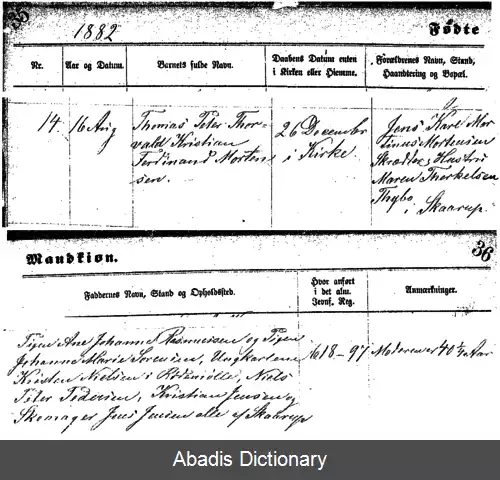 35
1882
Fødte
Nr.
Aar og Datum.
Barnets fulde Navn.
Daabens Datum enten
i Kirken eller Hjemme.
Forældrenes Navn, Stand,
Haandtering og Bopæl.
14
16 Aug
Thomas Peter Thor-
vald Kristian
Ferdinand Morten-
sen.
26 December
i Kirke.
Jens Karl Mar-
tinus Mortensen
Skrædder, Hustru
Maren Therkelsen
Thybo
i Skaarup.
Mandkion.
36
Faddernes Navn, Stand og Opholdssted.
Hvor anført
i det alm.
Jevnf. Reg.
Anmærkninger.
Pigen Ane Johanne Rasmussen og Pigen
Johanne Marie Sørensen, Ungkarlene
Kristen Nielsen i, Niels
Peter Pedersen, Kristian Jensen og
Skomager Jens Jensen alle af Skaarup
618-97
Moderen er 40 1/4 Aar
Abadis Dictionary